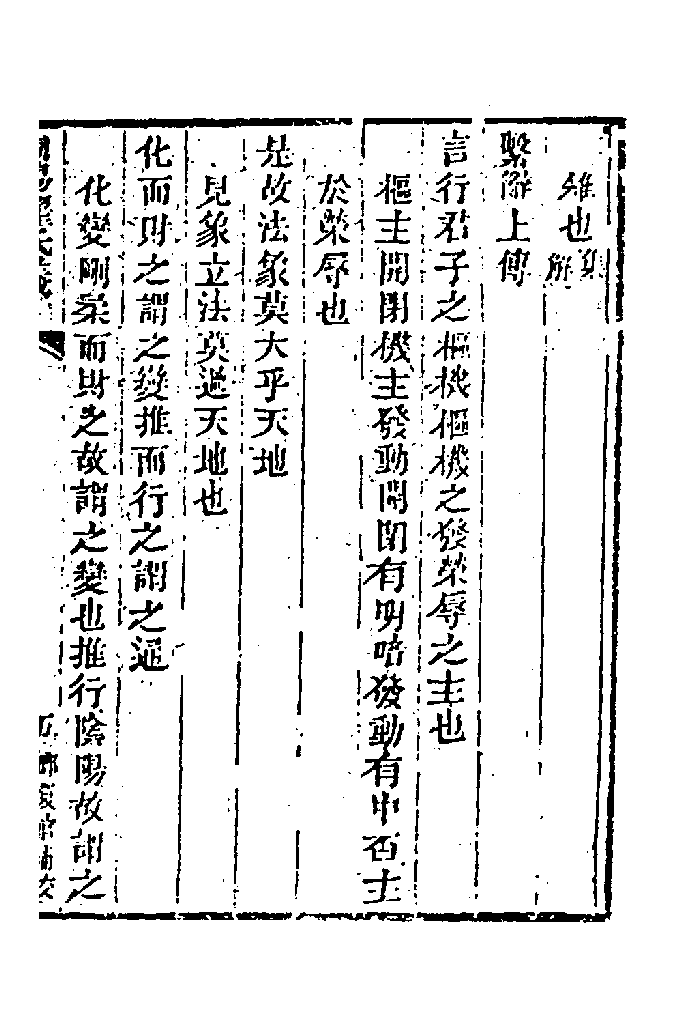 雖也集解
繫辭上傳
言行君子之樞機樞機之發榮辱之主也
樞主開閉機主發動開閉有明暗發動有中否主
於榮辱也
是故法象莫大乎天地
見象立法莫過天地也
化而財之謂之變推而行之謂之通
化變剛柔而財之故謂之變也推行陰陽故謂之